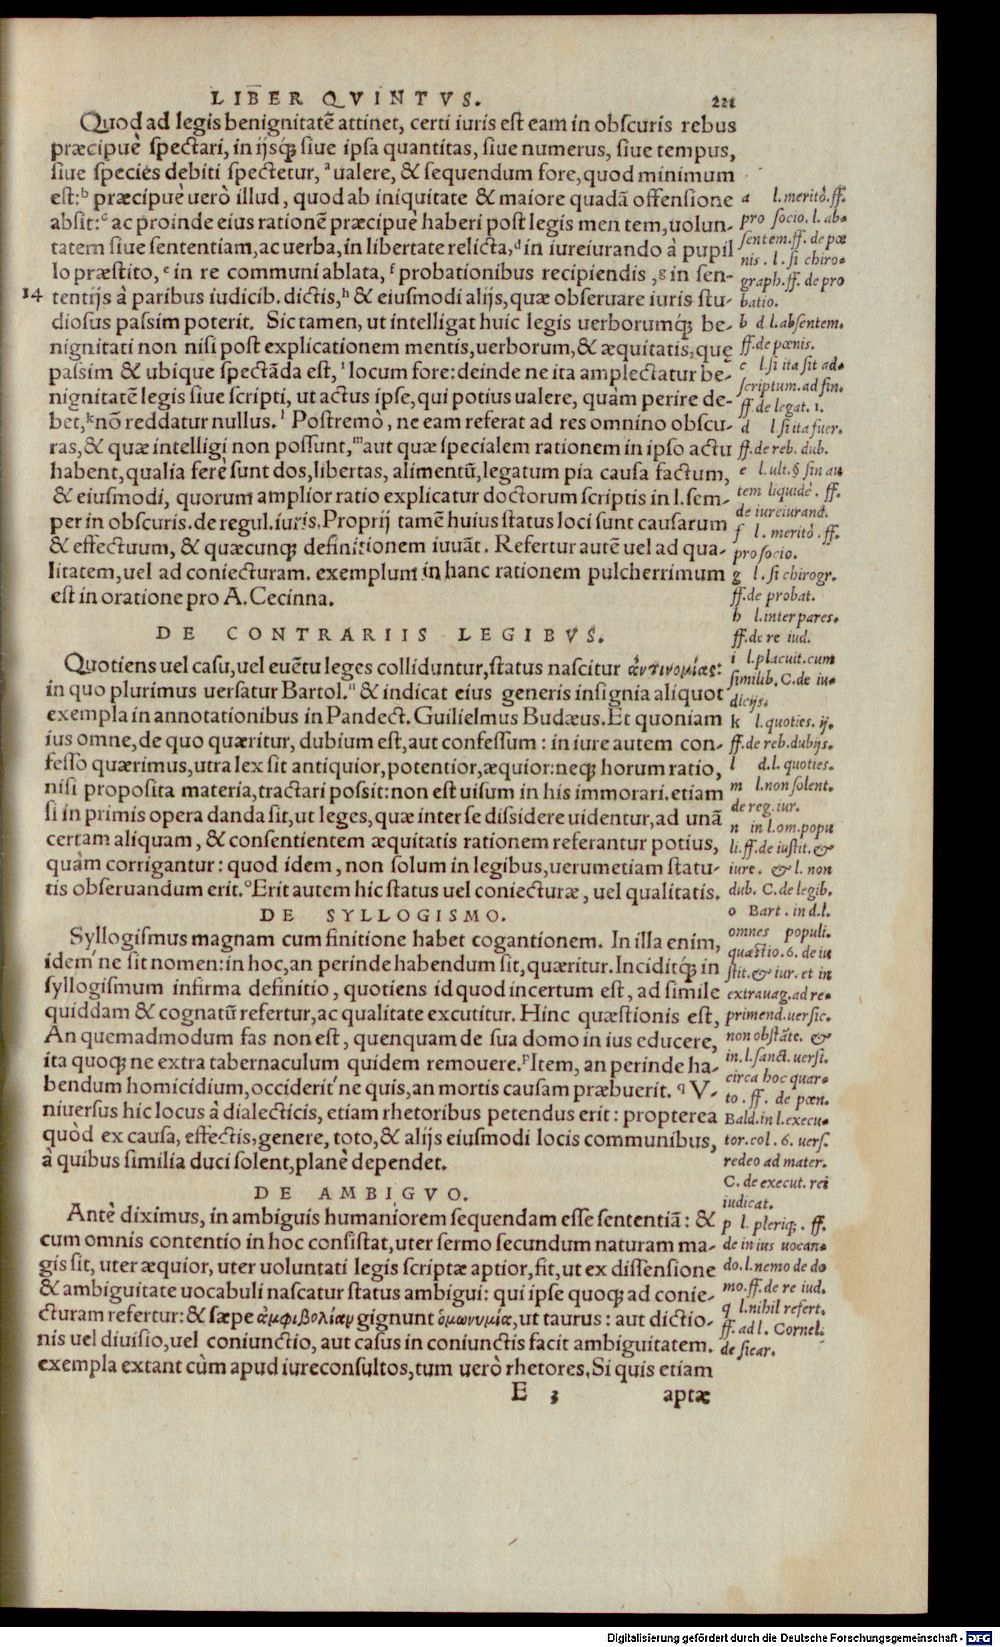 LIBER QVINTVS. 221
Quod ad legis benignitatē attinet, certi iuris est eam in obscuris rebus
præcipuè spectari, in ijsq́; siue ipsa quantitas, siue numerus, siue tempus,
siue species debiti spectetur, ᵃ ualere, & sequendum fore, quod minimum
est:ᵇ præcipuè uerò illud, quod ab iniquitate & maiore quadā offensione
absit:ᶜ ac proinde eius rationē præcipuè haberi post legis men tem, uolun-
tatem siue sententiam, ac uerba, in libertate relicta,ᵈ in iureiurando à pupil
lo præstito, ᵉ in re communi ablata, ᶠ probationibus recipiendis ,ᵍ in sen-
14 tentijs à paribus iudicib. dictis,ʰ & eiusmodi alijs, quæ obseruare iuris stu-
diosus passim poterit. Sic tamen, ut intelligat huic legis uerborumq́; be-
nignitati non nisi post explicationem mentis, uerborum, & æquitatis, quę
passim & ubique spectāda est, ⁱ locum fore: deinde ne ita amplectatur be-
nignitatē legis siue scripti, ut actus ipse, qui potius ualere, quàm perire de-
bet,ᵏ nō reddatur nullus. ˡ Postremò, ne eam referat ad res omnino obscu-
ras, & quæ intelligi non possunt,ᵐ aut quæ specialem rationem in ipso actu
habent, qualia ferè sunt dos, libertas, alimentū, legatum pia causa factum,
& eiusmodi, quorum amplior ratio explicatur doctorum scriptis in l. sem-
per in obscuris. de regul. iuris. Proprij tamē huius status loci sunt causarum
& effectuum, & quæcunq; definitionem iuuāt. Refertur autē uel ad qua-
litatem, uel ad coniecturam. exemplum in hanc rationem pulcherrimum
est in oratione pro A. Cecinna.
DE CONTRARIIS LEGIBVS.
Quotiens uel casu, uel euētu leges colliduntur, status nascitur ἀντινομίας:
in quo plurimus uersatur Bartol.ⁿ & indicat eius generis insignia aliquot
exempla in annotationibus in Pandect. Guilielmus Budæus. Et quoniam
ius omne, de quo quæritur, dubium est, aut confessum : in iure autem con-
fesso quærimus, utra lex sit antiquior, potentior, æquior: neq; horum ratio,
nisi proposita materia, tractari possit: non est uisum in his immorari. etiam
si in primis opera danda sit, ut leges, quæ inter se dissidere uidentur, ad unā
certam aliquam, & consentientem æquitatis rationem referantur potius,
quàm corrigantur: quod idem, non solum in legibus, uerumetiam statu-
tis obseruandum erit.ᵒ Erit autem hic status uel coniecturæ, uel qualitatis.
DE SYLLOGISMO.
Syllogismus magnam cum finitione habet cogantionem. In illa enim,
idem'ne sit nomen: in hoc, an perinde habendum sit, quæritur. Inciditq́; in
syllogismum infirma definitio, quotiens id quod incertum est, ad simile
quiddam & cognatū refertur, ac qualitate excutitur. Hinc quæstionis est,
An quemadmodum fas non est, quenquam de sua domo in ius educere,
ita quoq; ne extra tabernaculum quidem remouere.ᵖ Item, an perinde ha-
bendum homicidium, occiderit'ne quis, an mortis causam præbuerit. ᑫ V-
niuersus hic locus à dialecticis, etiam rhetoribus petendus erit: propterea
quòd ex causa, effectis, genere, toto, & alijs eiusmodi locis communibus,
à quibus similia duci solent, planè dependet.
DE AMBIGVO.
Antè diximus, in ambiguis humaniorem sequendam esse sententiā: &
cum omnis contentio in hoc consistat, uter sermo secundum naturam ma-
gis sit, uter æquior, uter uoluntati legis scriptæ aptior, fit, ut ex dissensione
& ambiguitate uocabuli nascatur status ambigui: qui ipse quoq; ad conie-
cturam refertur: & sæpe ἀμφιβολίαν gignunt ὁμωνυμία, ut taurus : aut dictio-
nis uel diuisio, uel coniunctio, aut casus in coniunctis facit ambiguitatem.
exempla extant cùm apud iureconsultos, tum uerò rhetores. Si quis etiam
E 3 aptæ
a l. meritò. ff.
pro socio. l. ab-
sentem. ff. de pœ
nis. l. si chiro-
graph. ff. de pro
batio.
b d. l. absentem.
ff. de pœnis.
c l. si ita sit ad-
scriptum. ad fin.
ff. de legat. 1.
d l. si ita fuer.
ff. de reb. dub.
e l. ult. § sin au
tem liquidè. ff.
de iureiurand.
f l. meritò. ff.
pro socio.
g l. si chirogr.
ff. de probat.
h l. inter pares.
ff. de re iud.
i l. placuit. cum
similib. C. de iu-
dicijs.
k l. quoties. ij.
ff. de reb. dubijs.
l d. l. quoties.
m l. non solent.
de reg. iur.
n in l. om. popu
li. ff. de iustit. &
iure. & l. non
dub. C. de legib.
o Bart. in d. l.
omnes populi.
quæstio. 6. de iu
stit. & iur. et in
extrauag. ad re-
primend. uersic.
non obstāte. &
in. l. sanct. uersi.
circa hoc quar-
to. ff. de pœn.
Bald. in l. execu-
tor. col. 6. uers.
redeo ad mater.
C. de execut. rei
iudicat.
p l. pleriq;. ff.
de in ius uocan-
do. l. nemo de do
mo. ff. de re iud.
q l. nihil refert.
ff. ad l. Cornel.
de sicar.
Digitalisierung gefördert durch die Deutsche Forschungsgemeinschaft - DFG